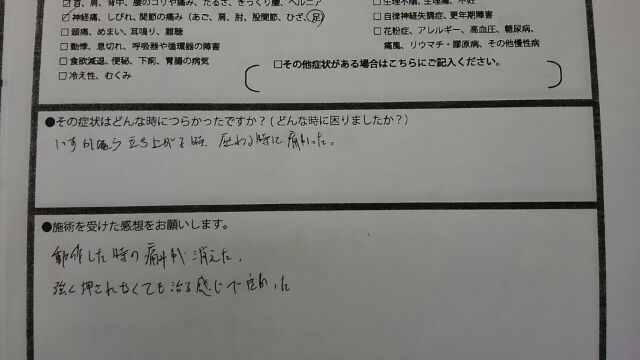 ☑首、肩、背中、腰のコリや痛み、だるさ、ぎっくり腰、ヘルニア
☑神経痛、しびれ、関節の痛み(あご、肩、肘、股関節、ひざ、足)
□頭痛、めまい、耳鳴り、難聴
□動悸、息切れ、呼吸器や循環器の障害
□食欲減退、便秘、下痢、胃腸の病気
□冷え性、むくみ
□生理不順、生理痛、不妊
□自律神経失調症、更年期障害
□花粉症、アレルギー、高血圧、糖尿病、
痛風、リウマチ・膠原病、その他慢性病
□その他症状がある場合はこちらにご記入ください。
●その症状はどんな時につらかったですか?(どんな時に困りましたか?)
いすから立ち上がる時、座わる時に痛かった。
●施術を受けた感想をお願いします。
動作した時の痛みが消えた。
強く押されなくても治る感じで良かった